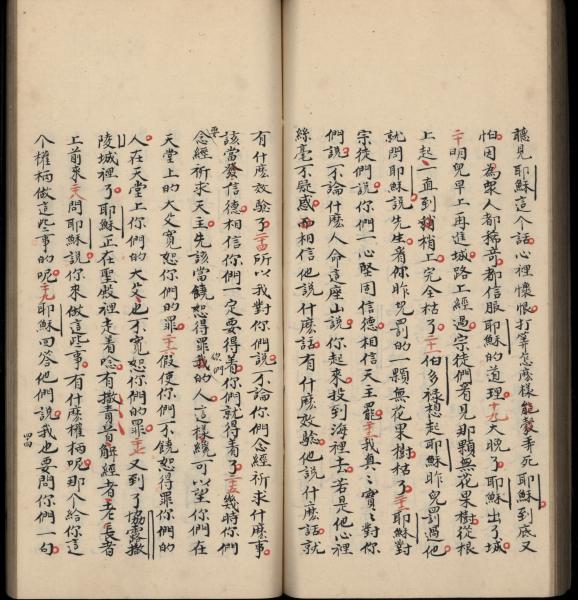 聽見耶穌這个話心裡懷恨打筭怎麽樣能彀弄死耶穌到底又
怕因為衆人都稀奇都信服耶穌的道理十九天晚了耶穌出了城
二十明兒早上再進城路上經過宗徒們看見那顆無花果樹從根
上起一直到稍上完全枯了二十一伯多祿想起耶穌昨兒罰過他
就問耶穌說先生看你昨兒罰的一顆無花果樹枯了二十二耶穌對
宗徒們說你們一心堅固信德相信天王罷二十三我真真實實對你
們說不論什麽人命這座山說你起來投到海裡去若是他心裡
絲毫不疑惑而相信他說什麽話有什麽效驗他說什麽話就
有什麽效驗了二十四所以我對你們說不論你們念經祈求什麽事
該當發信德相信你們一定要得着你們就得着了二十五幾時你們
要念經祈求天王先該當饒恕得罪你們的人這樣纔可以望你們在
天堂上的大父寬恕你們的罪二十六假使你們不饒恕得罪你們的
人在天堂上你們的大父也不寬恕你們的罪二十七又到了協露撒
陵城裡了耶穌正在聖殿裡走着念有撒責爾度解經者老長者
上前來二十八問耶穌說你來做這些事有什麽權柄呢那个給你這
个權柄做這些事的呢二十九耶穌回答他們說我也要問你們一句